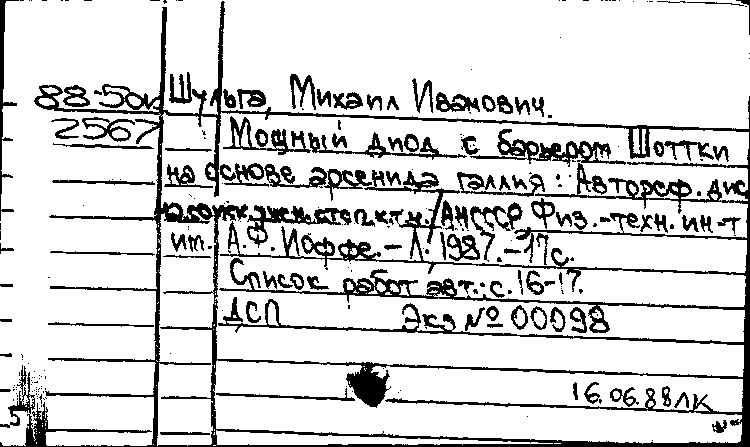 88-50к Шульга, Михаил Иванович.
2567 Мощный диод с барьером Шоттки
на основе арсенида галлия: Автореф. дис
на соиск. учен. степ. к.т.н. / АН СССР, Физ.-техн. ин-т
им. А.Ф. Иоффе. - Л. 1987. - 17с.
Список работ авт.: с. 16-17.
ДСП Экз № 00098
16.06.88 ЛК